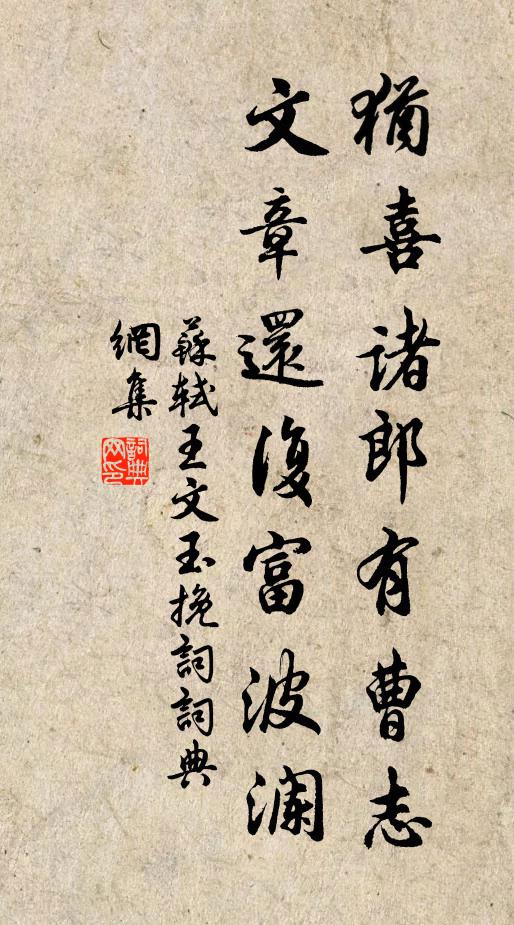 猶喜诸郎有曹志
文章還復富波澜
蘇轼王文玉挽詞詞典
網集
詞典
网印